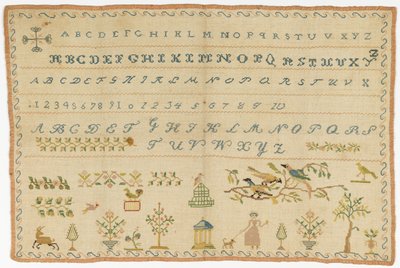 ABCDEFGHIKLMNOPQRSTUVXYZ
ABCDEFGHIKLMNOPQRSTUVXYZ
ABCDEFGHIKLMNOPQRSTUVX
12345678910 12345678910
ABCDEFGHIKLMNOPQRS
TUVWXYZ